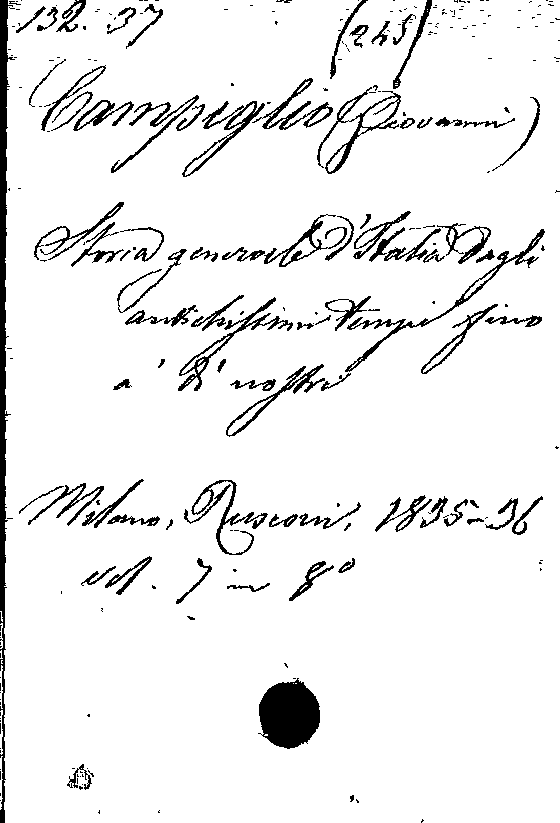 132. 37 (245)
Campiglio (Giovanni)
Storia generale d'Italia dagli
antichissimi tempi fino
a' dì nostri
Milano, Rusconi, 1835-36
vol. 7 in 8º